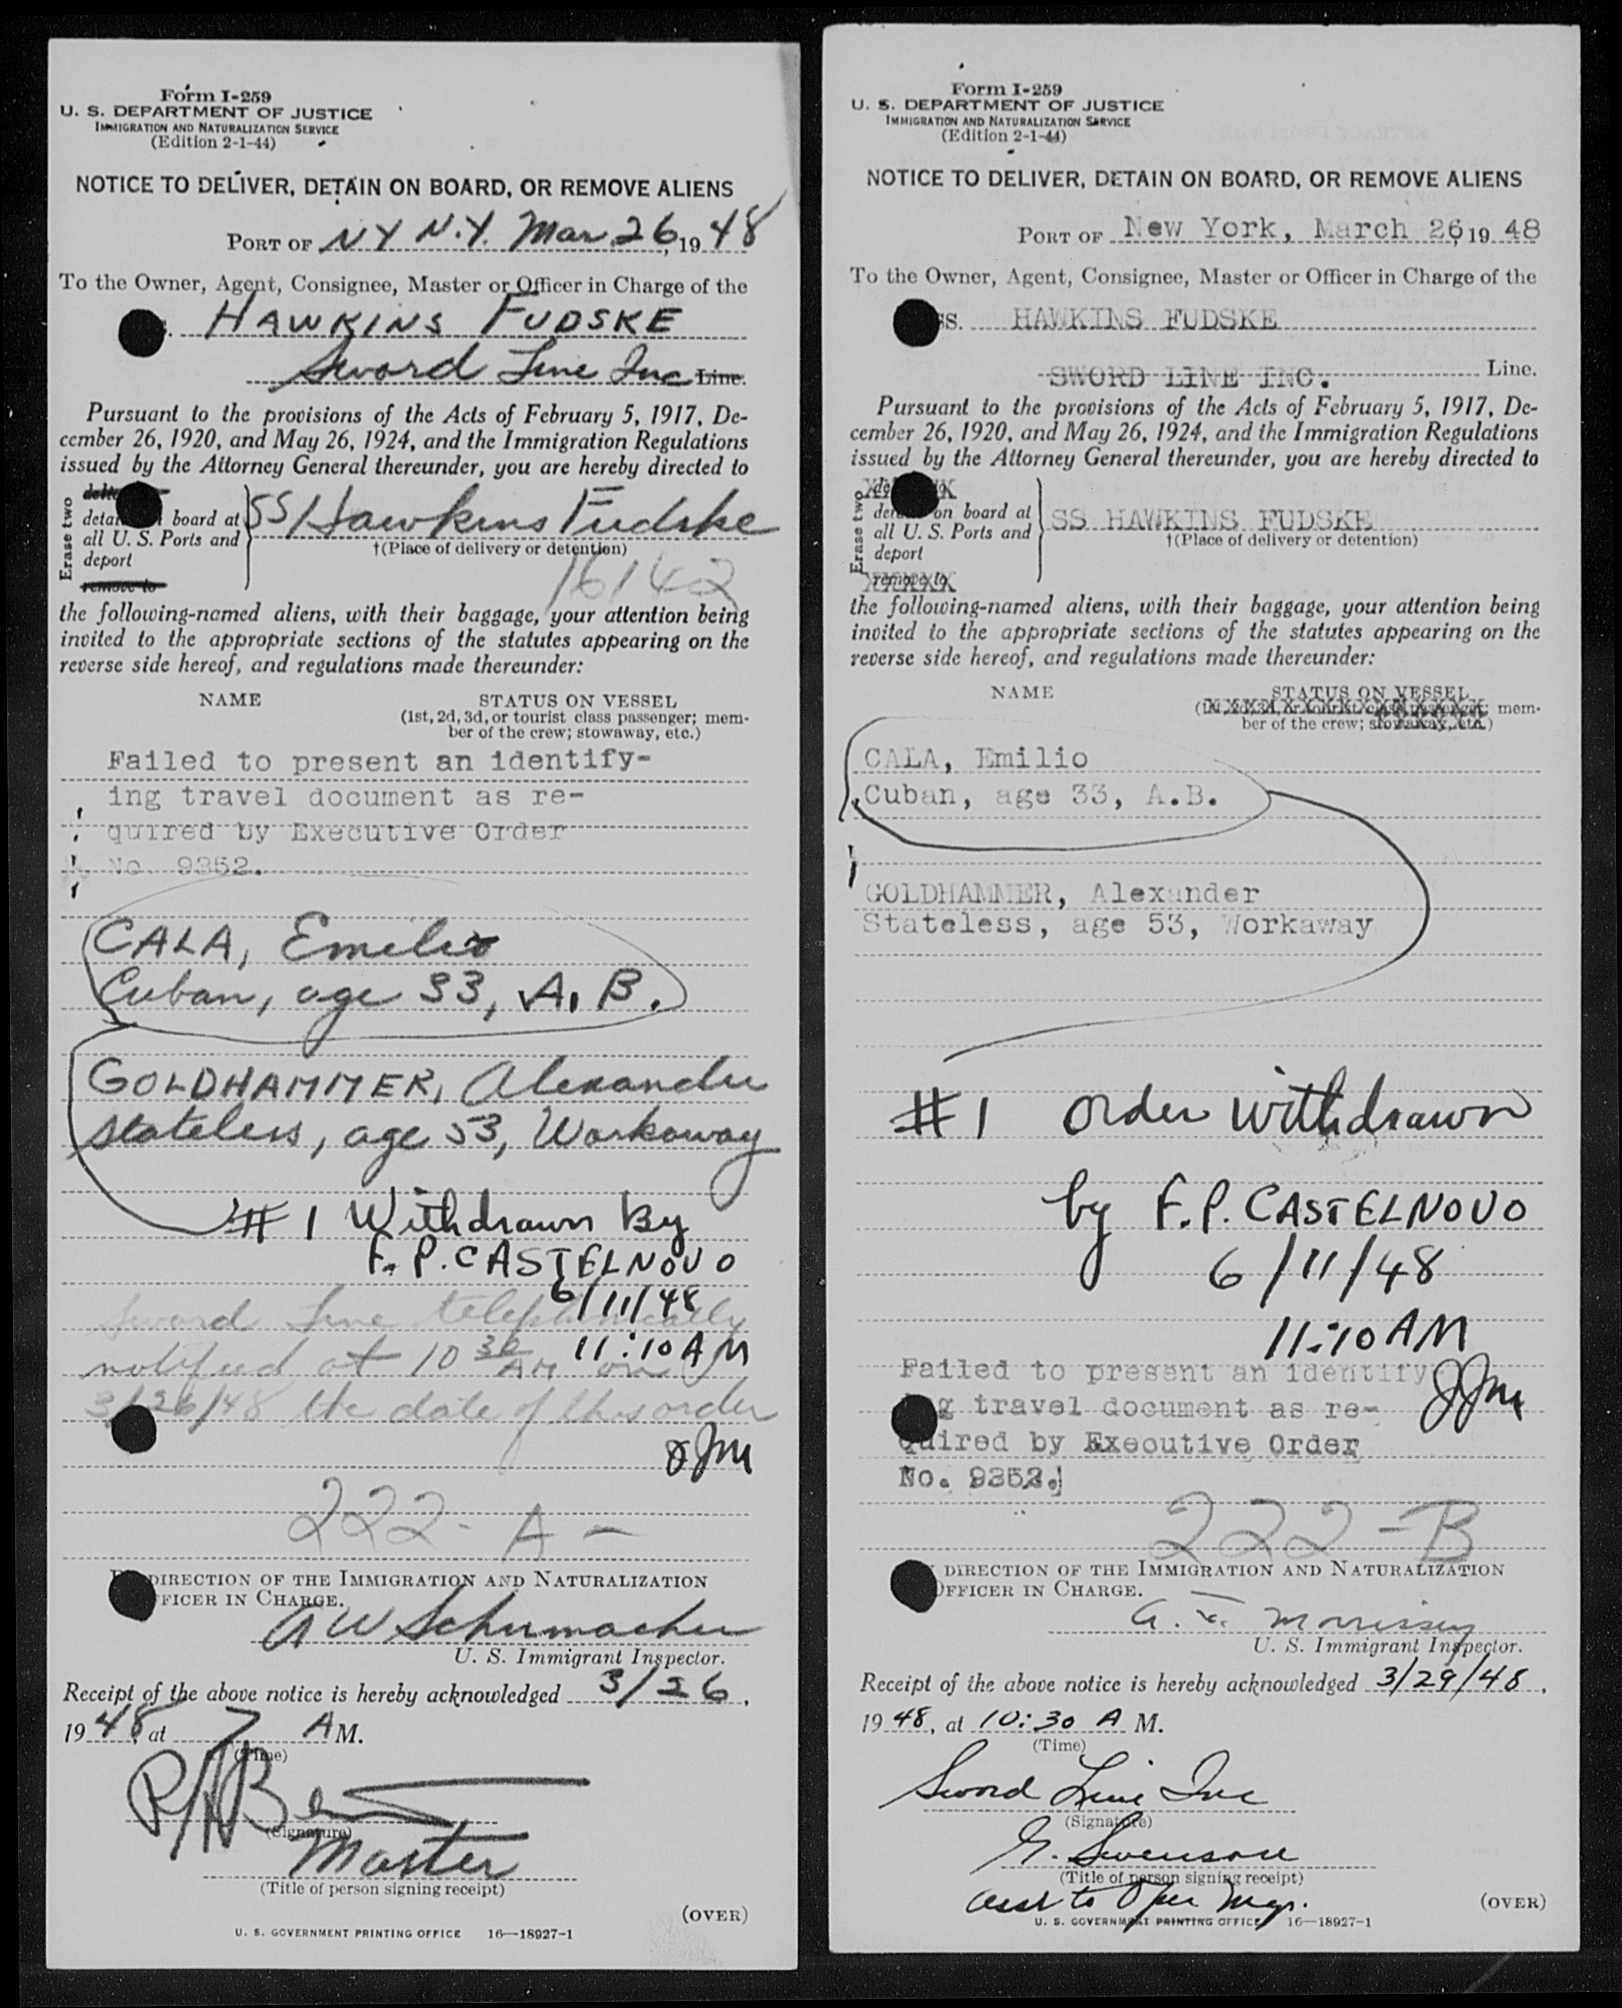 Form I-259
U. S. DEPARTMENT OF JUSTICE
IMMIGRATION AND NATURALIZATION SERVICE
(Edition 2-1-44)
NOTICE TO DELIVER, DETAIN ON BOARD, OR REMOVE ALIENS
PORT OF NY N.Y. Mar 26, 19 48
To the Owner, Agent, Consignee, Master or Officer in Charge of the
HAWKINS FUDSKE
Sword Line Inc Line.
Pursuant to the provisions of the Acts of February 5, 1917, De-
cember 26, 1920, and May 26, 1924, and the Immigration Regulations
issued by the Attorney General thereunder, you are hereby directed to
Erase two
board at
all U. S. Ports and
deport
remove to
SS Hawkins Fudske
†(Place of delivery or detention)
16142
the following-named aliens, with their baggage, your attention being
invited to the appropriate sections of the statutes appearing on the
reverse side hereof, and regulations made thereunder:
NAME STATUS ON VESSEL
(1st, 2d, 3d, or tourist class passenger; mem-
ber of the crew; stowaway, etc.)
Failed to present an identify-
ing travel document as re-
quired by Executive Order
No. 9352.
CALA, Emilio
Cuban, age 33, A. B.
GOLDHAMMER, Alexander
Stateless, age 53, Workaway
#1 Withdrawn By
F. P. CASTELNOVO
6/11/48
11:10 AM
Sword Line telephonically
notified at 10 30 AM on
3/26/48 the date of this order
JJM
222-A-
DIRECTION OF THE IMMIGRATION AND NATURALIZATION
FICER IN CHARGE.
A W Schumacher
U. S. Immigrant Inspector.
Receipt of the above notice is hereby acknowledged 3/26,
19 48, at 7 A M.
(Time)
(Signature)
Master
(Title of person signing receipt)
(OVER)
U. S. GOVERNMENT PRINTING OFFICE 16—18927-1
Form I-259
U. S. DEPARTMENT OF JUSTICE
IMMIGRATION AND NATURALIZATION SERVICE
(Edition 2-1-44)
NOTICE TO DELIVER, DETAIN ON BOARD, OR REMOVE ALIENS
PORT OF New York, March 26, 19 48
To the Owner, Agent, Consignee, Master or Officer in Charge of the
SS. HAWKINS FUDSKE
SWORD LINE INC. Line.
Pursuant to the provisions of the Acts of February 5, 1917, De-
cember 26, 1920, and May 26, 1924, and the Immigration Regulations
issued by the Attorney General thereunder, you are hereby directed to
Erase two
on board at
all U. S. Ports and
deport
remove to
SS HAWKINS FUDSKE
†(Place of delivery or detention)
the following-named aliens, with their baggage, your attention being
invited to the appropriate sections of the statutes appearing on the
reverse side hereof, and regulations made thereunder:
NAME STATUS ON VESSEL
(1st, 2d, 3d, or tourist class passenger; mem-
ber of the crew; stowaway, etc.)
CALA, Emilio
Cuban, age 33, A.B.
GOLDHAMMER, Alexander
Stateless, age 53, Workaway
#1 Order withdrawn
by F. P. CASTELNOVO
6/11/48
11:10 AM
JJM
Failed to present an identify
g travel document as re-
quired by Executive Order
No. 9352.
222-B
DIRECTION OF THE IMMIGRATION AND NATURALIZATION
OFFICER IN CHARGE.
Morrissey
U. S. Immigrant Inspector.
Receipt of the above notice is hereby acknowledged 3/29/48,
19 48, at 10:30 A M.
(Time)
Sword Line Inc
(Signature)
G. Swenson
(Title of person signing receipt)
Asst to Oper Mgr.
(OVER)
U. S. GOVERNMENT PRINTING OFFICE 16—18927-1